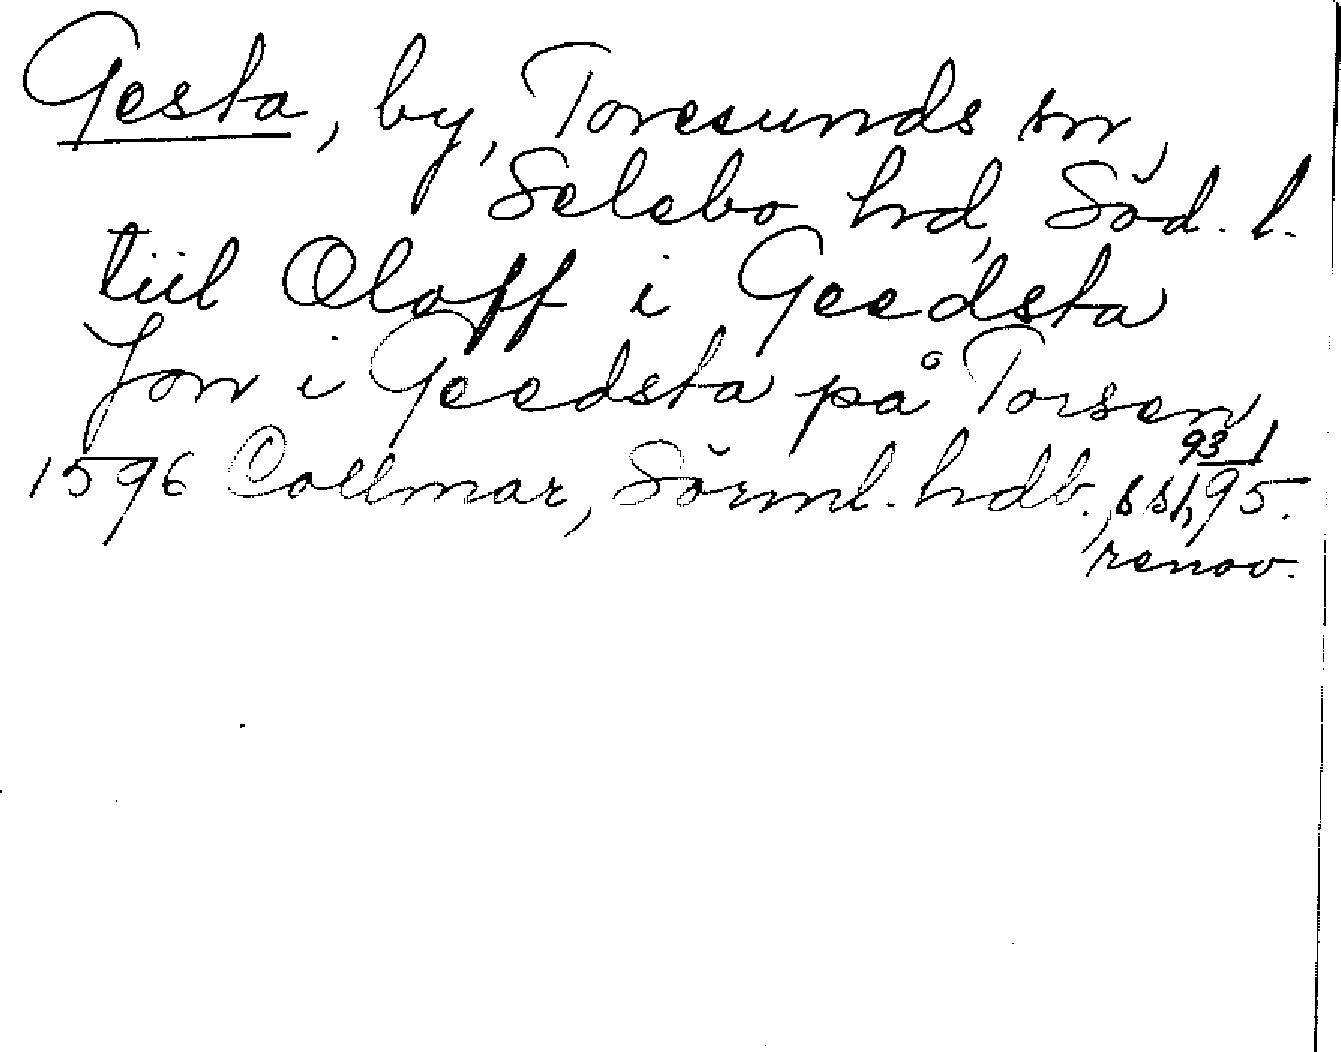 Gesta, by, Toresunds sn,
Selebo hd, Söd. l.
tiil Oloff i Geedsta
Jon i Geedsta på Torsen
93
1596 Collmar, Sörml. hdb., 95.
renov.